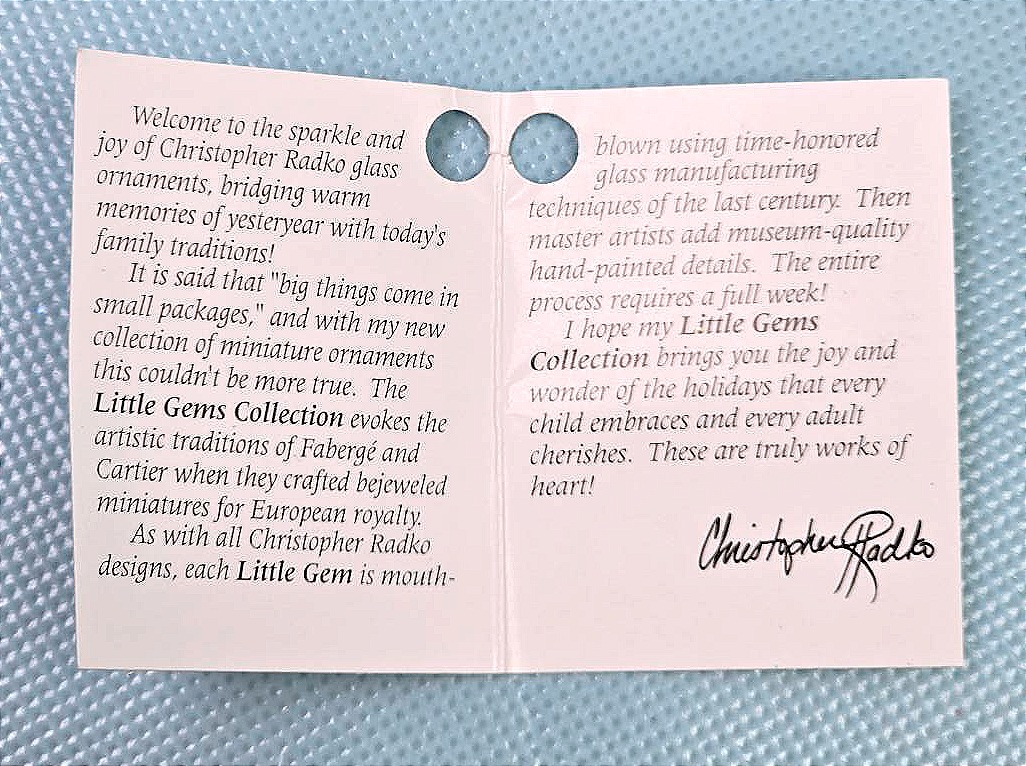 Welcome to the sparkle and
joy of Christopher Radko glass
ornaments, bridging warm
memories of yesteryear with today's
family traditions!
It is said that "big things come in
small packages," and with my new
collection of miniature ornaments
this couldn't be more true. The
Little Gems Collection evokes the
artistic traditions of Fabergé and
Cartier when they crafted bejeweled
miniatures for European royalty.
As with all Christopher Radko
designs, each Little Gem is mouth-
blown using time-honored
glass manufacturing
techniques of the last century. Then
master artists add museum-quality
hand-painted details. The entire
process requires a full week!
I hope my Little Gems
Collection brings you the joy and
wonder of the holidays that every
child embraces and every adult
cherishes. These are truly works of
heart!
Christopher Radko